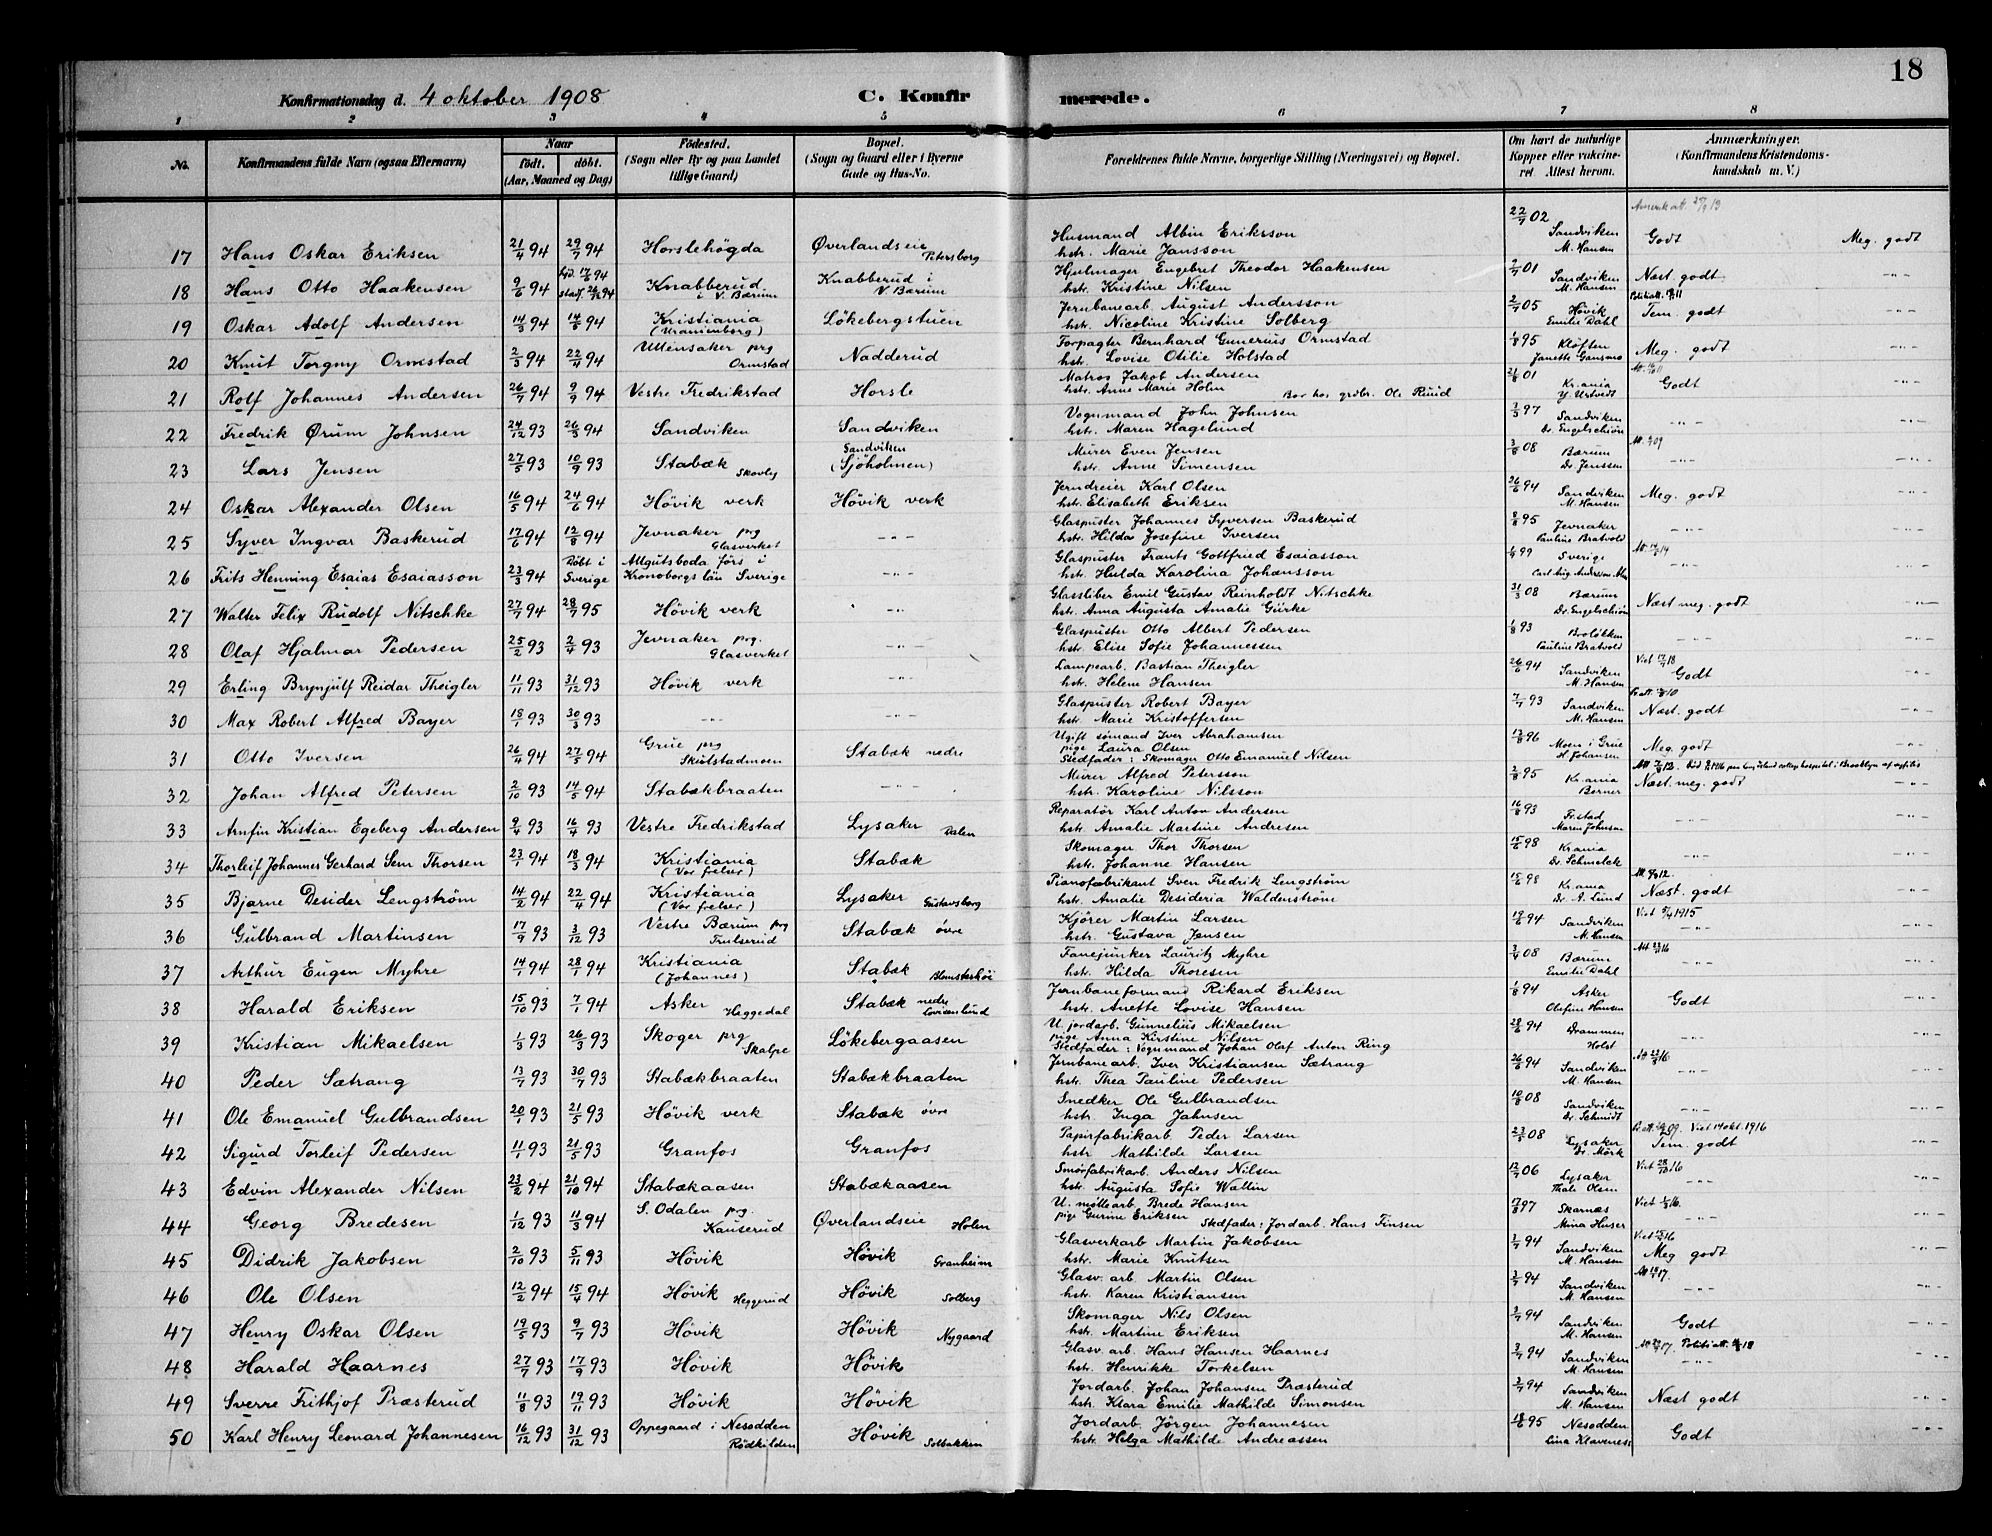 18
Konfirmationsdag d. 4 oktober 1908 C. Konfirmerede.
1 2 3 4 5 6 7 8
No. Konfirmandens fulde Navn (ogsaa Efternavn) Naar født. døbt. (Aar, Maaned og Dag) Fødested. (Sogn eller By og paa Landet tillige Gaard) Bopæl. (Sogn og Gaard eller i Byerne Gade og Hus-No. Forældrenes fulde Navne, borgerlige Stilling (Næringsvei) og Bopæl. Om havt de naturlige Kopper eller vakcineret. Attest herom. Anmærkninger. (Konfirmandens Kristendomskundskab m. V.)
17 Hans Oskar Eriksen 21/4 94 29/7 94 Horslehögda Øverlandseie Petersborg Husmand Albin Eriksson hstr. Marie Jansson 22/7 02 Sandviken M. Hansen Godt Meg. godt
18 Hans Otto Haakensen 9/6 94 Knabberud i V. Bærum Knabberud i V. Bærum Hjulmager Engebret Theodor Haakensen hstr. Kristine Nilsen 2/7 01 Sandviken M. Hansen Næst godt -"-
19 Oskar Adolf Andersen 14/3 94 14/6 94 Kristiania (Uranienborg) Lökebergstuen Jernbanearb. August Andersson hstr. Nicoline Kristine Solberg 2/7 05 Hövik Emilie Dahl Tem. godt -"-
20 Knut Torgny Ormstad 2/3 94 22/4 94 Ullensaker prg Ormstad Nadderud Forpagter Bernhard Gunerius Ormstad hstr. Lovise Otilie Holstad 1/8 95 Klöften Meg. godt -"-
21 Rolf Johannes Andersen 26/7 94 9/9 94 Vestre Fredrikstad Horsle Matros Jakob Andersen hstr. Anne Marie Holm Bor hos grdbr. Ole Ruud 21/8 01 Kr.ania Y. Ustvedt Godt -"-
22 Fredrik Ørum Johnsen 24/12 93 26/3 94 Sandviken Sandviken Vognmand John Johnsen hstr. Maren Hagelund 3/3 97 Sandviken Dr. Engelschiön -"- -"-
23 Lars Jensen 27/5 93 10/9 93 Stabæk Skovly Sandviken (Sjöholmen) Murer Even Jensen hstr. Anne Simensen 3/8 08 Bærum Dr. Jenssen -"- -"-
24 Oskar Alexander Olsen 16/5 94 24/6 94 Hövik verk Hövik verk Jerndreier Karl Olsen hstr. Elisabeth Eriksen 26/6 94 Sandviken M. Hansen Meg. godt -"-
25 Syver Ingvar Baskerud 17/6 94 12/8 94 Jevnaker prg Glasverket -"- Glaspuster Johannes Syversen Baskerud hstr. Hilda Josefine Iversen 8/8 95 Jevnaker Pauline Bratvold -"- -"-
26 Frits Henning Esaias Esaiasson 23/3 94 Döbt i Sverige Allgutsboda förs i Kronobergs län Sverige -"- Glaspuster Frants Gottfried Esaiasson hstr. Hulda Karolina Johansson 99 Sverige -"- -"-
27 Walter Felix Rudolf Nitschke 27/7 94 28/7 95 Hövik verk -"- Glassliber Emil Gustav Reinholdt Nitschke hstr. Anna Augusta Amalie Gürke 31/3 08 Bærum Dr. Engelschiön Næst meg. godt -"-
28 Olaf Hjalmar Pedersen 25/2 93 2/4 93 Jevnaker prg. Glasverket -"- Glaspuster Otto Albert Pedersen hstr. Elise Sofie Johannessen 1/8 93 Brolökken Pauline Bratvold -"- -"-
29 Erling Brynjulf Reidar Theigler 11/11 93 31/12 93 Hövik verk -"- Lampearb. Bastian Theigler hstr. Helene Hansen 26/6 94 Sandviken M. Hansen Godt -"-
30 Max Robert Alfred Bayer 18/1 93 30/3 93 -"- -"- Glaspuster Robert Bayer hstr. Marie Kristoffersen 7/7 93 Sandviken M. Hansen Næst. godt -"-
31 Otto Iversen 26/4 94 27/5 94 Grue prg Skulstadmoen Stabæk nedre Ugift sömand Iver Abrahamsen pige Laura Olsen Stedfader: Skomager Otto Emanuel Nilsen 13/8 96 Moen i Grue H. Johansen Meg. godt -"-
32 Johan Alfred Petersen 2/10 93 14/5 94 Stabækbraaten -"- Murer Alfred Petersson hstr. Karoline Nilsson 2/8 95 Kr.ania Berner Næst. meg. godt -"-
33 Arnfin Kristian Egeberg Andersen 9/4 93 16/4 93 Vestre Fredrikstad Lysaker Dalen Reparatör Karl Anton Andersen hstr. Amalie Martine Andresen 16/8 93 Fr.stad Maren Johnsen -"- -"-
34 Thorleif Johannes Gerhard Sem Thorsen 23/1 94 18/3 94 Kristiania (Vor frelser) Stabæk Skomager Thor Thorsen hstr. Johanne Hansen 15/6 98 Kr.ania Dr. Schmelck -"- -"-
35 Bjarne Desider Lengström 14/2 94 22/4 94 Kristiania (Vor frelser) Lysaker Gustavsborg Pianofabrikant Sven Fredrik Lengström hstr. Amalie Desideria Waldenström 15/6 98 Kr.ania Dr. A. Lund Næst. godt -"-
36 Gulbrand Martinsen 17/9 93 3/12 93 Vestre Bærum prg Frulserud Stabæk övre Kjörer Martin Larsen hstr. Gustava Jensen 94 Sandviken M. Hansen Viet 5/4 1915 -"- -"-
37 Arthur Eugen Myhre 14/1 94 28/1 94 Kristiania (Johannes) Stabæk Blomsterhöi Fanejunker Lauritz Myhre hstr. Hilda Thoresen 3/4 08 Bærum Emilie Dahl -"- -"-
38 Harald Eriksen 15/10 93 7/1 94 Asker Heggedal Stabæk nedre Lovisenlund Jernbaneformand Rikard Eriksen hstr. Anette Lovise Hansen 1/8 94 Asker Olefine Hansen Godt -"-
39 Kristian Mikaelsen 1/3 93 26/3 93 Skoger prg Skalpe Lökebergaasen U. jordarb. Gunnelius Mikaelsen pige Anna Kirstine Nilsen Stedfader: Vognmand Johan Olaf Anton Ring 28/6 94 Drammen Holst -"- -"-
40 Peder Sætrang 13/7 93 30/7 93 Stabækbraaten Stabækbraaten Jernbanearb. Iver Kristiansen Sætrang hstr. Thea Pauline Pedersen 26/6 94 Sandviken M. Hansen -"- -"-
41 Ole Emanuel Gulbrandsen 20/1 93 21/5 93 Hövik verk Stabæk övre Snedker Ole Gulbrandsen hstr. Inga Jahnsen 10/8 08 Sandviken Dr. Schmidt -"- -"-
42 Sigurd Torleif Pedersen 11/1 93 21/5 93 Granfos Granfos Papirfabrikarb. Peder Larsen hstr. Mathilde Larsen 23/5 08 Lysaker Dr. Mörk Viet 14 okt. 1916 Tem. godt -"-
43 Edvin Alexander Nilsen 23/2 94 21/10 94 Stabækaasen Stabækaasen Smörfabrikarb. Anders Nilsen hstr. Augusta Sofie Wallin 06 Lysaker Thale Olsen -"- -"-
44 Georg Bredesen 1/12 93 11/3 94 S. Odalen prg. Kauserud Øverlandseie Holen U. möllearb. Brede Hansen pige Gurine Eriksen Stedfader: Jordarb. Hans Finsen 97 Skarnæs Mina Huser -"- -"-
45 Didrik Jakobsen 2/10 93 5/11 93 Hövik Hövik Granheim Glasverkarb Martin Jakobsen hstr. Marie Knutsen 3/7 94 Sandviken M. Hansen Meg godt -"-
46 Ole Olsen 12/2 94 15/4 94 Hövik Heggerud Hövik Solberg Glasv. arb. Martin Olsen hstr. Karen Kristiansen 3/7 94 Sandviken M. Hansen -"- -"-
47 Henry Oskar Olsen 19/5 93 9/7 93 Hövik Hövik Nygaard Skomager Nils Olsen hstr. Martine Eriksen 3/7 94 Sandviken M. Hansen Godt -"-
48 Harald Haarnes 27/7 93 17/9 93 Hövik Hövik Glasv. arb. Hans Hansen Haarnes hstr. Henrikke Torkelsen 3/7 94 Sandviken M. Hansen -"- -"-
49 Sverre Frithjof Præsterud 11/8 93 19/11 93 Hövik Hövik Jordarb. Johan Johansen Præsterud hstr. Klara Emilie Mathilde Simonsen 3/7 94 Sandviken M. Hansen Næst godt -"-
50 Karl Henry Leonard Johannesen 16/12 93 31/12 93 Oppegaard i Nesodden Rödkilden Hövik Solbakken Jordarb Jörgen Johannesen hstr. Helga Mathilde Andreassen 95 Nesodden Lina Klaveness Godt -"-